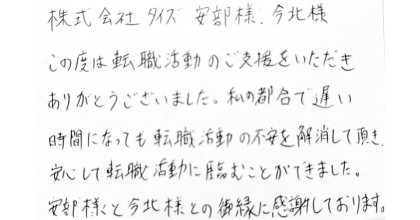 株式会社タイズ 安部様、今北様
この度は転職活動のご支援をいただき
ありがとうございました。私の都合で遅い
時間になっても転職活動の不安を解消して頂き、
安心して転職活動に臨むことができました。
安部様と今北様との御縁に感謝しております。